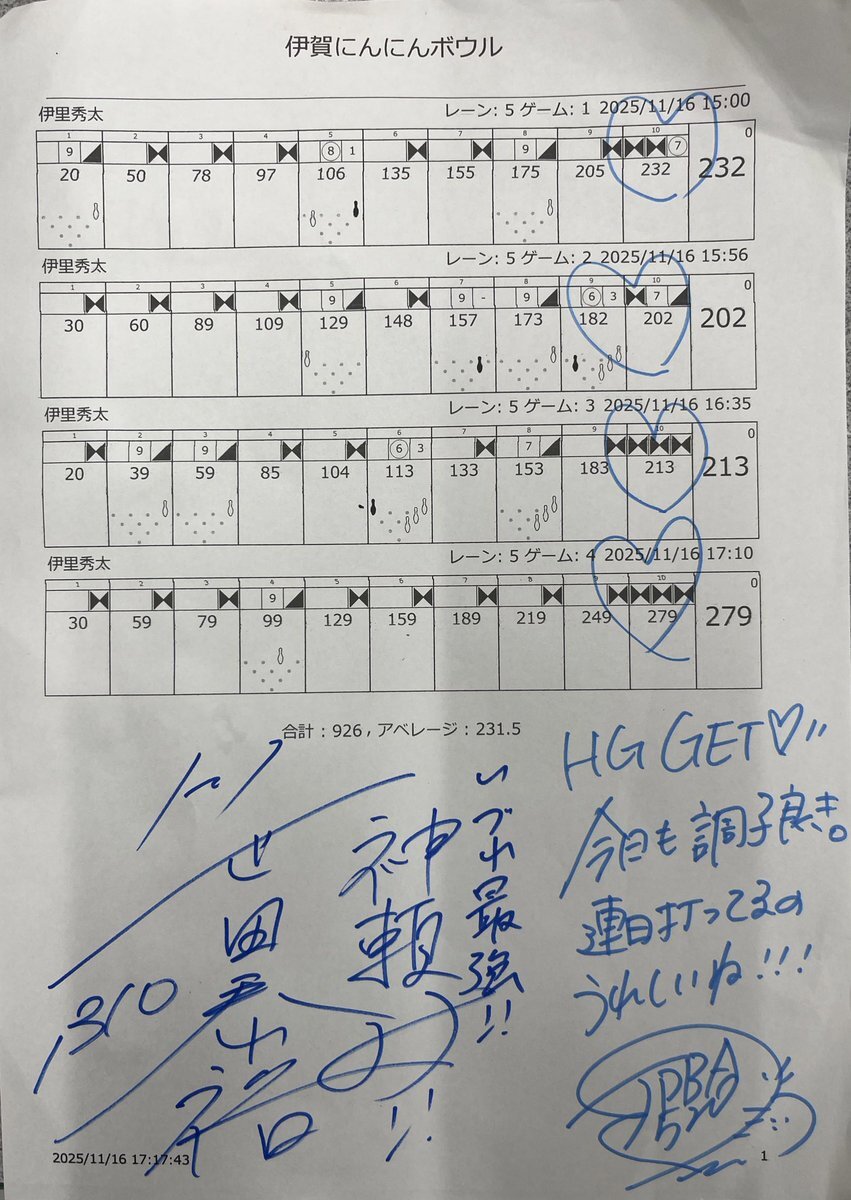 伊賀にんにんボウル
伊里秀太 レーン: 5 ゲーム: 1 2025/11/16 15:00
1 2 3 4 5 6 7 8 9 10 0
9 8 1 9 7
20 50 78 97 106 135 155 175 205 232 232
伊里秀太 レーン: 5 ゲーム: 2 2025/11/16 15:56
1 2 3 4 5 6 7 8 9 10 0
9 9 - 9 6 3 7
30 60 89 109 129 148 157 173 182 202 202
伊里秀太 レーン: 5 ゲーム: 3 2025/11/16 16:35
1 2 3 4 5 6 7 8 9 10 0
9 9 6 3 7
20 39 59 85 104 113 133 153 183 213 213
伊里秀太 レーン: 5 ゲーム: 4 2025/11/16 17:10
1 2 3 4 5 6 7 8 9 10 0
9
30 59 79 99 129 159 189 219 249 279 279
合計 : 926 , アベレージ : 231.5
HG GET♡
今日も調子良き。
連日打ってるの
うれしいね!!!
JPBA
520
最強!!
神頼み!!
2025/11/16 17:17:43
1